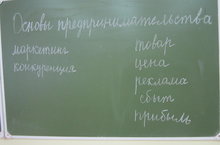 Основы предпринимательства
маркетинг
конкуренция
товар
цена
реклама
сбыт
прибыль